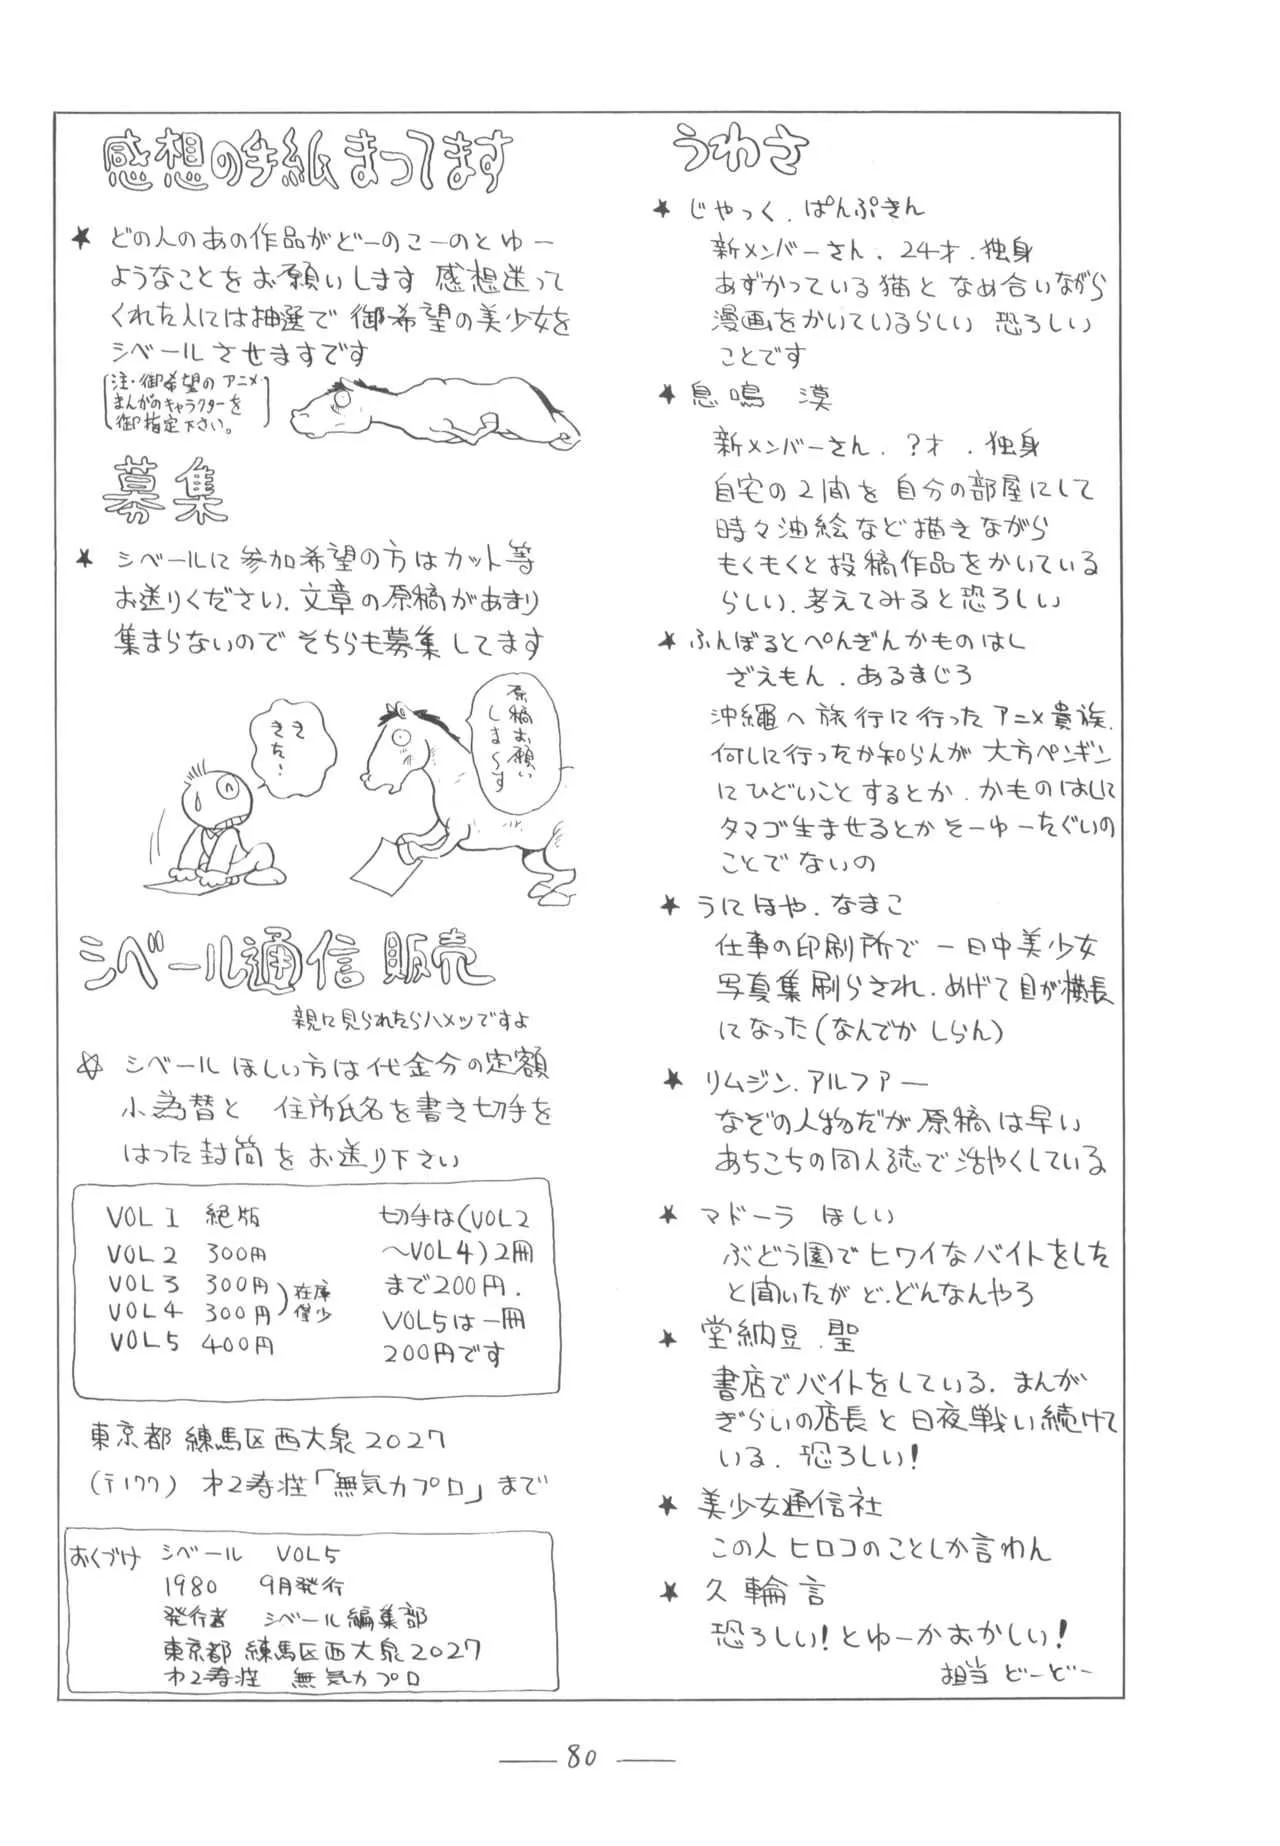 感想の手紙まってます
★ どの人のあの作品がどーのこーのとゆー
ようなことをお願いします 感想送って
くれた人には抽選で 御希望の美少女を
シベールさせますです
注・御希望のアニメ・
まんがのキャラクターを
御指定下さい。
募集
★ シベールに参加希望の方はカット等
お送りください.文章の原稿があまり
集まらないので そちらも募集してます
きた〜
原稿お願い
しま〜す
シベール通信販売
親に見られたらハメツですよ
☆ シベールほしい方は代金分の定額
小為替と 住所氏名を書き切手を
はった封筒をお送り下さい
VOL 1 絶版
VOL 2 300円
VOL 3 300円
VOL 4 300円
在庫
僅少
VOL 5 400円
切手は(VOL2
〜VOL4)2冊
まで200円.
VOL5は一冊
200円です
東京都練馬区西大泉2027
(〒177) 第2寿荘「無気力プロ」まで
おくづけ シベール VOL5
1980 9月発行
発行者 シベール編集部
東京都練馬区西大泉2027
第2寿荘 無気力プロ
うわさ
★ じゃっく.ぱんぷきん
新メンバーさん.24才.独身
あずかっている猫となめ合いながら
漫画をかいているらしい 恐ろしい
ことです
★ 息鳴 漠
新メンバーさん.?才.独身
自宅の2間を自分の部屋にして
時々油絵など描きながら
もくもくと投稿作品をかいている
らしい.考えてみると恐ろしい
★ ふんぼるとぺんぎんかものはし
ざえもん.あるまじろ
沖縄へ旅行に行ったアニメ貴族.
何しに行ったか知らんが大方ペンギン
にひどいことするとか.かものはしに
タマゴ生ませるとかそーゆーたぐいの
ことでないの
★ うにほや.なまこ
仕事の印刷所で一日中美少女
写真集刷らされ.めげて目が横長
になった(なんでかしらん)
★ リムジン.アルファー
なぞの人物だが原稿は早い
あちこちの同人誌で活やくしている
★ マドーラ ほしい
ぶどう園でヒワイなバイトをした
と聞いたがど.どんなんやろ
★ 堂納豆.聖
書店でバイトをしている.まんが
ぎらいの店長と日夜戦い続けて
いる.恐ろしい!
★ 美少女通信社
この人ヒロコのことしか言わん
★ 久輪言
恐ろしい!とゆーかおかしい!
担当 どーどー
80